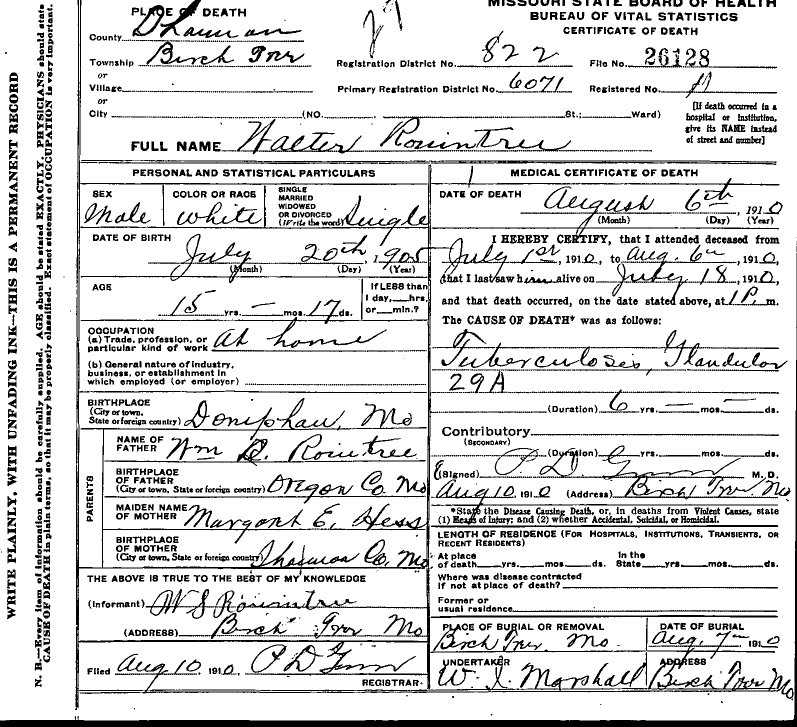 MISSOURI STATE BOARD OF HEALTH
BUREAU OF VITAL STATISTICS
CERTIFICATE OF DEATH
PLACE OF DEATH
County Shannon
Township Birch Tree
or
Village
or
City (NO. St.; Ward)
Registration District No. 822 File No. 26128
Primary Registration District No. 6071 Registered No.
[If death occurred in a
hospital or institution,
give its NAME instead
of street and number]
FULL NAME Walter Rountree
PERSONAL AND STATISTICAL PARTICULARS
SEX Male
COLOR OR RACE white
SINGLE
MARRIED
WIDOWED
OR DIVORCED
(Write the word) Single
DATE OF BIRTH July 20th, 1905
(Month) (Day) (Year)
AGE
15 yrs. — mos. 17 ds.
If LESS than
1 day, hrs.
or min.?
OCCUPATION
(a) Trade, profession, or
particular kind of work At home
(b) General nature of industry,
business, or establishment in
which employed (or employer)
BIRTHPLACE
(City or town,
State or foreign country) Doniphan, Mo
PARENTS
NAME OF
FATHER Wm Rountree
BIRTHPLACE
OF FATHER
(City or town, State or foreign country) Oregon Co. Mo
MAIDEN NAME
OF MOTHER Margaret E. Hess
BIRTHPLACE
OF MOTHER
(City or town, State or foreign country) Shannon Co. Mo
THE ABOVE IS TRUE TO THE BEST OF MY KNOWLEDGE
(Informant) W S Rountree
(ADDRESS) Birch Tree Mo
Filed Aug 10, 1910, P D Gunn
REGISTRAR
MEDICAL CERTIFICATE OF DEATH
DATE OF DEATH August 6th, 1910
(Month) (Day) (Year)
I HEREBY CERTIFY, that I attended deceased from
July 1st, 1910, to Aug. 6th, 1910,
that I last saw him alive on July 18, 1910,
and that death occurred, on the date stated above, at 1 P m.
The CAUSE OF DEATH* was as follows:
Tuberculosis, Glandular
29A
(Duration) 6 yrs. — mos. — ds.
Contributory
(SECONDARY)
(Duration) yrs. mos. ds.
(Signed) P D Gunn M. D.
Aug 10, 1910 (Address) Birch Tree Mo
*State the Disease Causing Death, or, in deaths from Violent Causes, state
(1) Means of Injury; and (2) whether Accidental, Suicidal, or Homicidal.
LENGTH OF RESIDENCE (FOR HOSPITALS, INSTITUTIONS, TRANSIENTS, OR
RECENT RESIDENTS)
At place of death yrs. mos. ds. In the State yrs. mos. ds.
Where was disease contracted
if not at place of death?
Former or
usual residence
PLACE OF BURIAL OR REMOVAL
Birch Tree, Mo.
DATE OF BURIAL
Aug. 7th 1910
UNDERTAKER
W. I. Marshall
ADDRESS
Birch Tree Mo
WRITE PLAINLY, WITH UNFADING INK—THIS IS A PERMANENT RECORD
N. B.—Every item of information should be carefully supplied. AGE should be stated EXACTLY. PHYSICIANS should state
CAUSE OF DEATH in plain terms, so that it may be properly classified. Exact statement of OCCUPATION is very important.